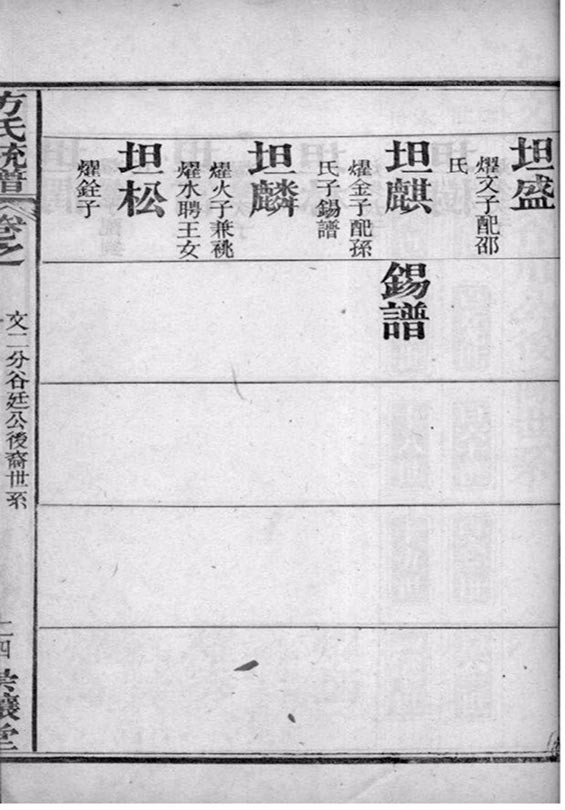 坦盛
燿文子配邵
氏
坦麒
燿金子配孫
氏子錫譜
錫譜
坦麟
燿火子兼祧
燿水聘王女
坦松
燿銓子
方氏統譜
卷之
文二分谷廷公後裔世系